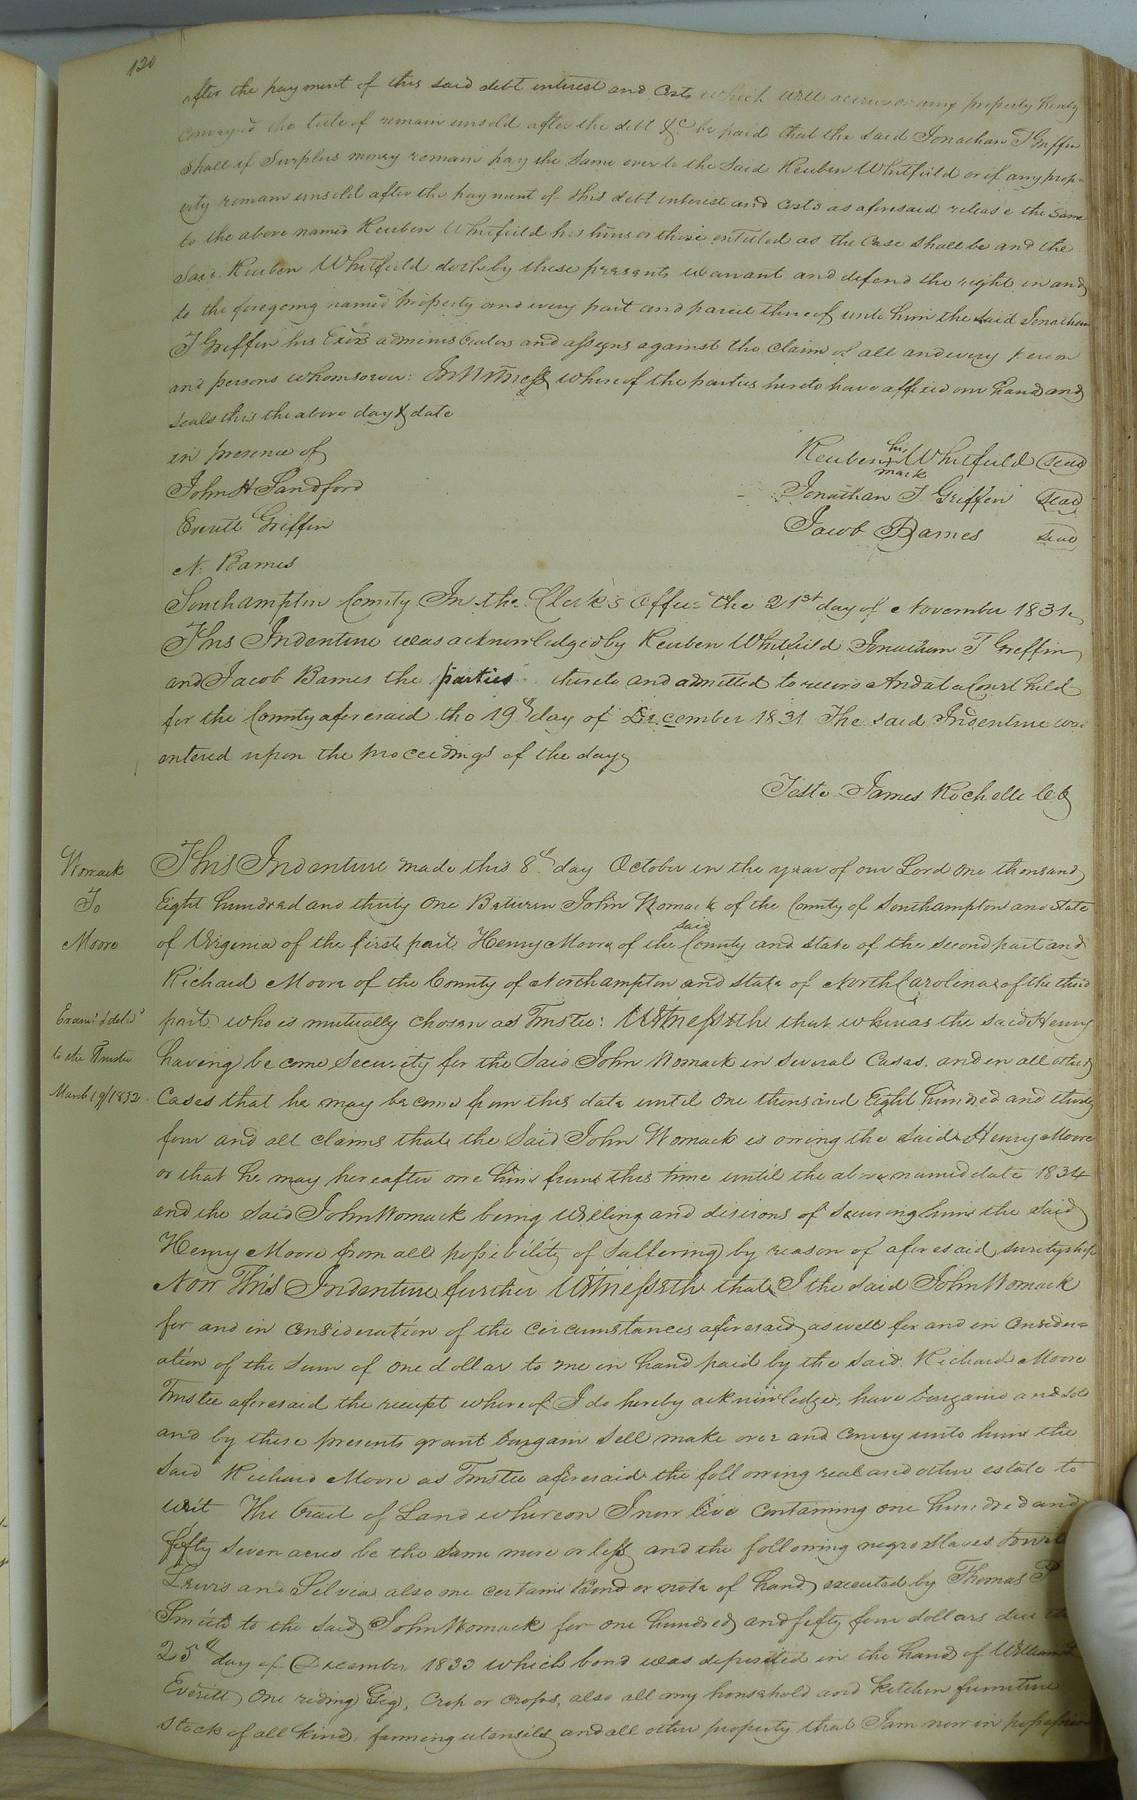 120
after the payment of this said debt interest and Costs which will accrue or any property hereby
conveyed the title of remain unsold after the debt &c be paid that the said Jonathan T Griffin
shall if Surplus money remain pay the same over to the said Reuben Whitfield or if any prop=
erty remain unsold after the payment of this debt interest and Costs as aforesaid release the same
to the above named Reuben Whitfield his heirs or those entitled as the case shall be and the
said Reuben Whitfield doth by these presents warant and defend the right in and
to the foregoing named property and every part and parcel thereof unto him the said Jonathan
T Griffin his Exors administrators and assigns against the claim of all and every person
and persons whomsoever: In Witness whereof the parties hereto have affixed our hand and
seals this the above day & date
in presence of
Reuben his mark Whitfield seal
John H Sandford
Jonathan T. Griffin seal
Everett Griffin
Jacob Barnes seal
N. Barnes
Southampton County In the Clerk's Office the 21st day of November 1831.
This Indenture was acknowledged by Reuben Whitfield Jonathan T Griffin
and Jacob Barnes the parties thereto and admitted to record And at a Court held
for the County aforesaid the 19th day of December 1831 The said Indenture was
entered upon the proceedings of the day
Teste James Rochelle CC
Womack
To
Moore
Exam'd & del'd
to the Trustee
March 19/1832
This Indenture made this 8th day October in the year of our Lord one thousand
Eight hundred and thirty One Between John Womack of the County of Southampton and State
of Virginia of the first part Henry Moore of the said County and state of the second part and
Richard Moore of the County of Northampton and State of North Carolina of the third
part who is mutually chosen as Trustee: Witnesseth that whereas the said Henry
having become security for the Said John Womack in several Cases. and in all other
Cases that he may become from this date until one thousand Eight hundred and thirty
four and all claims that the Said John Womack is owing the said Henry Moore
or that he may hereafter owe him from this time until the above named date 1834
and the said John Womack being willing and desirous of securing him the said
Henry Moore from all possibility of suffering by reason of aforesaid suretyship
Now This Indenture further Witnesseth that I the said John Womack
for and in consideration of the circumstances aforesaid as well for and in Consider=
ation of the Sum of one dollar to me in hand paid by the said Richard Moore
Trustee aforesaid the receipt whereof I do hereby acknowledge, have bargained and sold
and by these presents grant bargain sell make over and convey unto him the
said Richard Moore as Trustee aforesaid the following real and other estate to
wit The tract of Land whereon I now live containing one hundred and
fifty seven acres be the same more or less and the following negro slaves
Lewis and Silvia also one certain Bond or note of hand executed by Thomas P
Smith to the said John Womack for one hundred and fifty four dollars due the
25th day of December 1833 which bond was deposited in the hand of William
Everitt One riding Gig, Crop or crops, also all my household and kitchen furniture
stock of all kind, farming utensils and all other property that I am now in possession